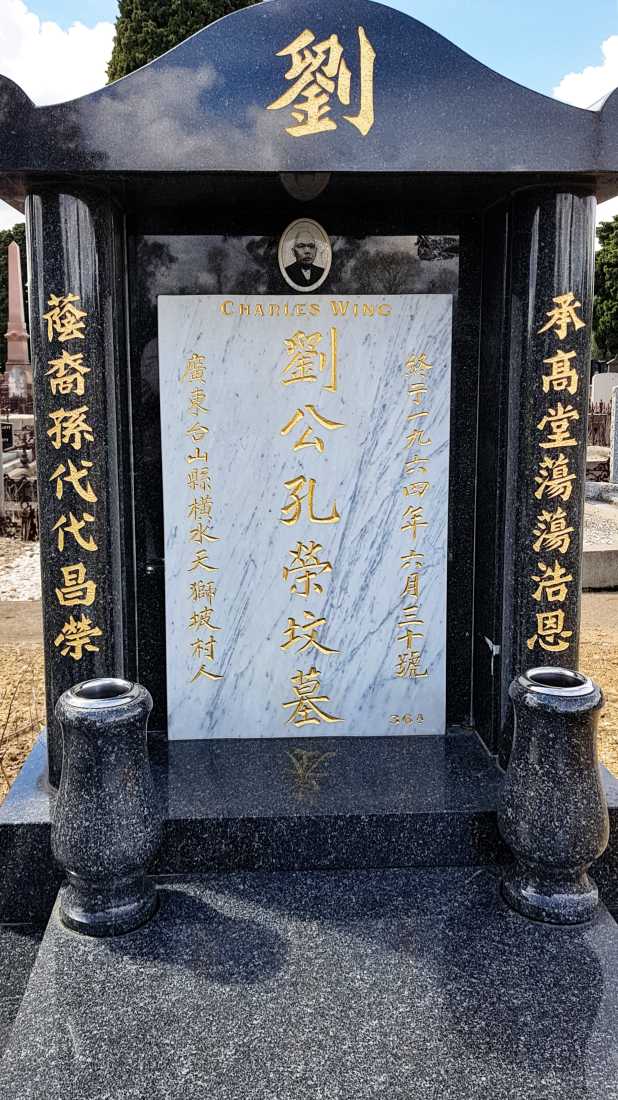 劉
CHARLES WING
承高堂蕩蕩浩恩
終于一九六四年六月三十號
劉公孔榮坟墓
廣東台山縣橫水天獅坡村人
蔭裔孫代代昌榮